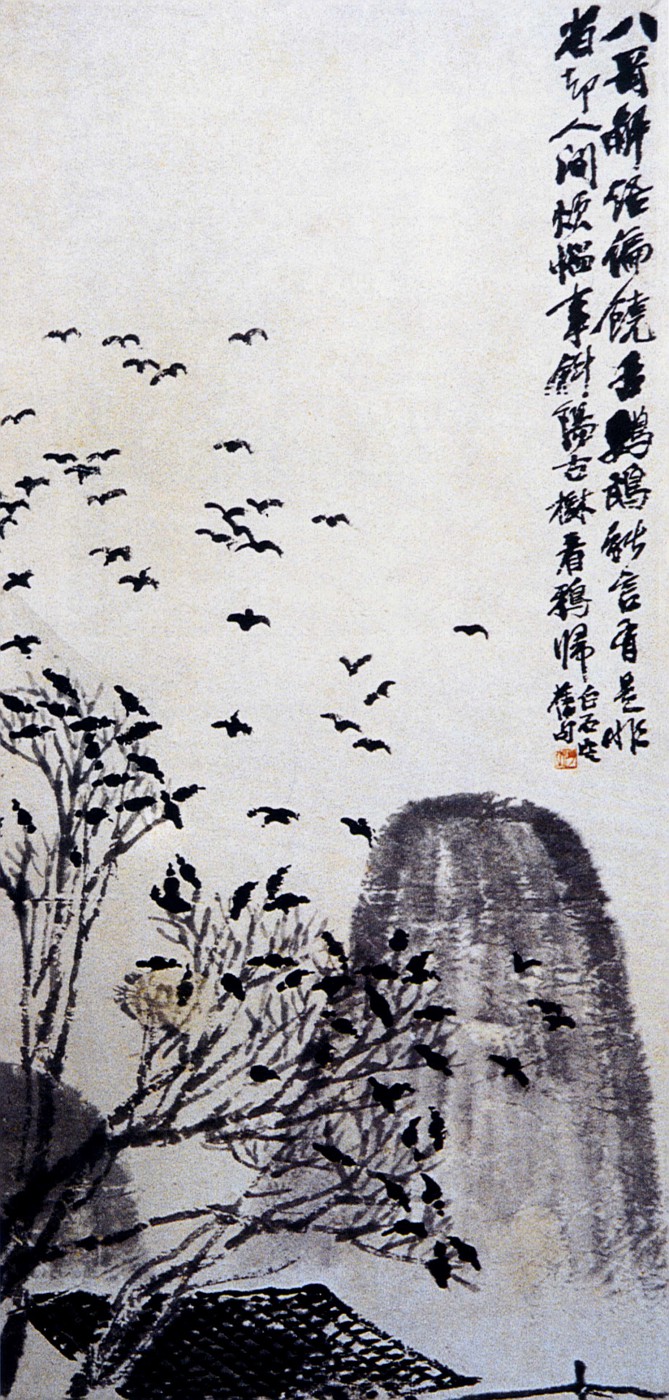 八哥解語偏饒舌鸚鵡能言有是非
省却人間煩惱事斜陽古樹看鴉歸
白石
舊句